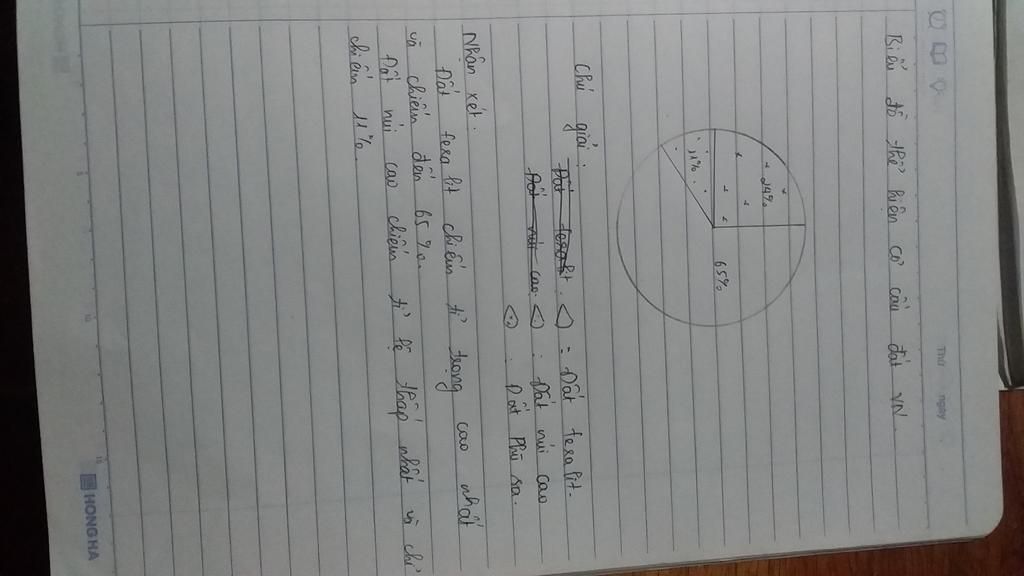 Thứ ngày
Biểu đồ thể hiện cơ cấu đất VN
24%
65%
11%
Chú giải:
Đất feralit : Đất feralit.
Đất núi cao : Đất núi cao
: Đất Phù sa.
Nhận xét.
Đất feralit chiếm tỉ trọng cao nhất
vì chiếm đến 65%.
Đất núi cao chiếm tỉ lệ thấp nhất vì chỉ
chiếm 11%.
HONG HA